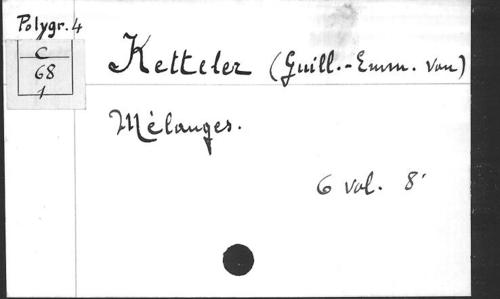 Polygr. 4
C
68
1
Ketteler (Guill.-Emm. von)
Mélanges.
6 vol. 8'